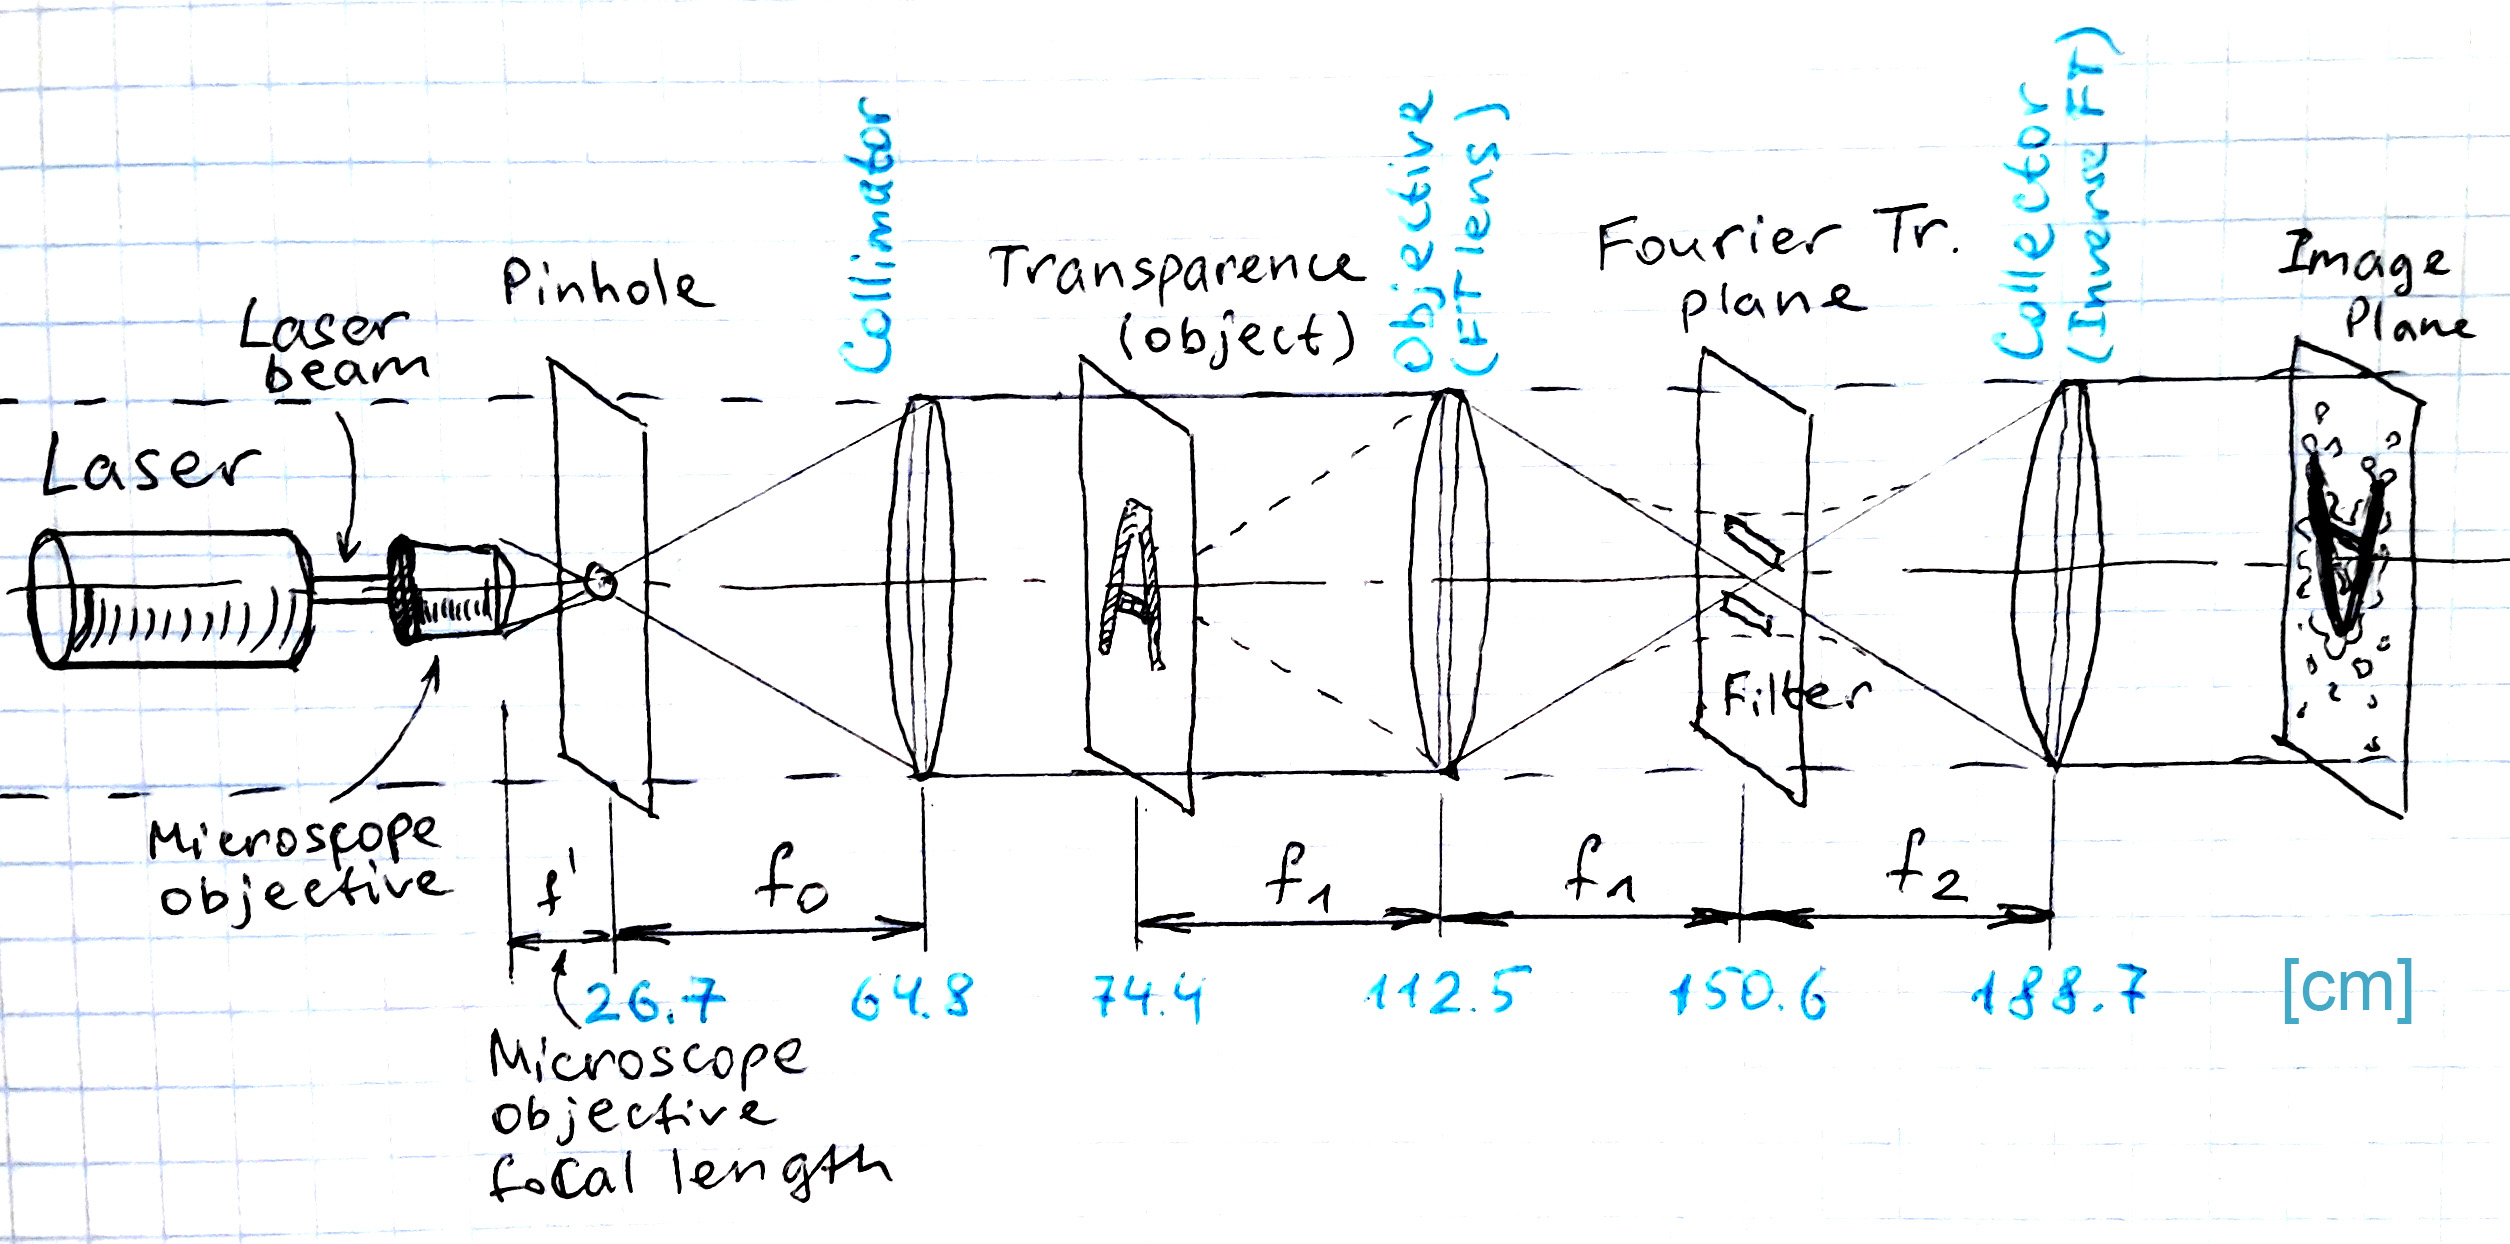 Collimator
Objective
(FT lens)
Collector
(Inverse FT)
Pinhole
Transparence
(object)
Fourier Tr.
plane
Image
Plane
Laser
beam
Laser
Filter
Microscope
objective
f'
f0
f1
f1
f2
26.7
64.8
74.4
112.5
150.6
188.7
[cm]
Microscope
objective
focal length